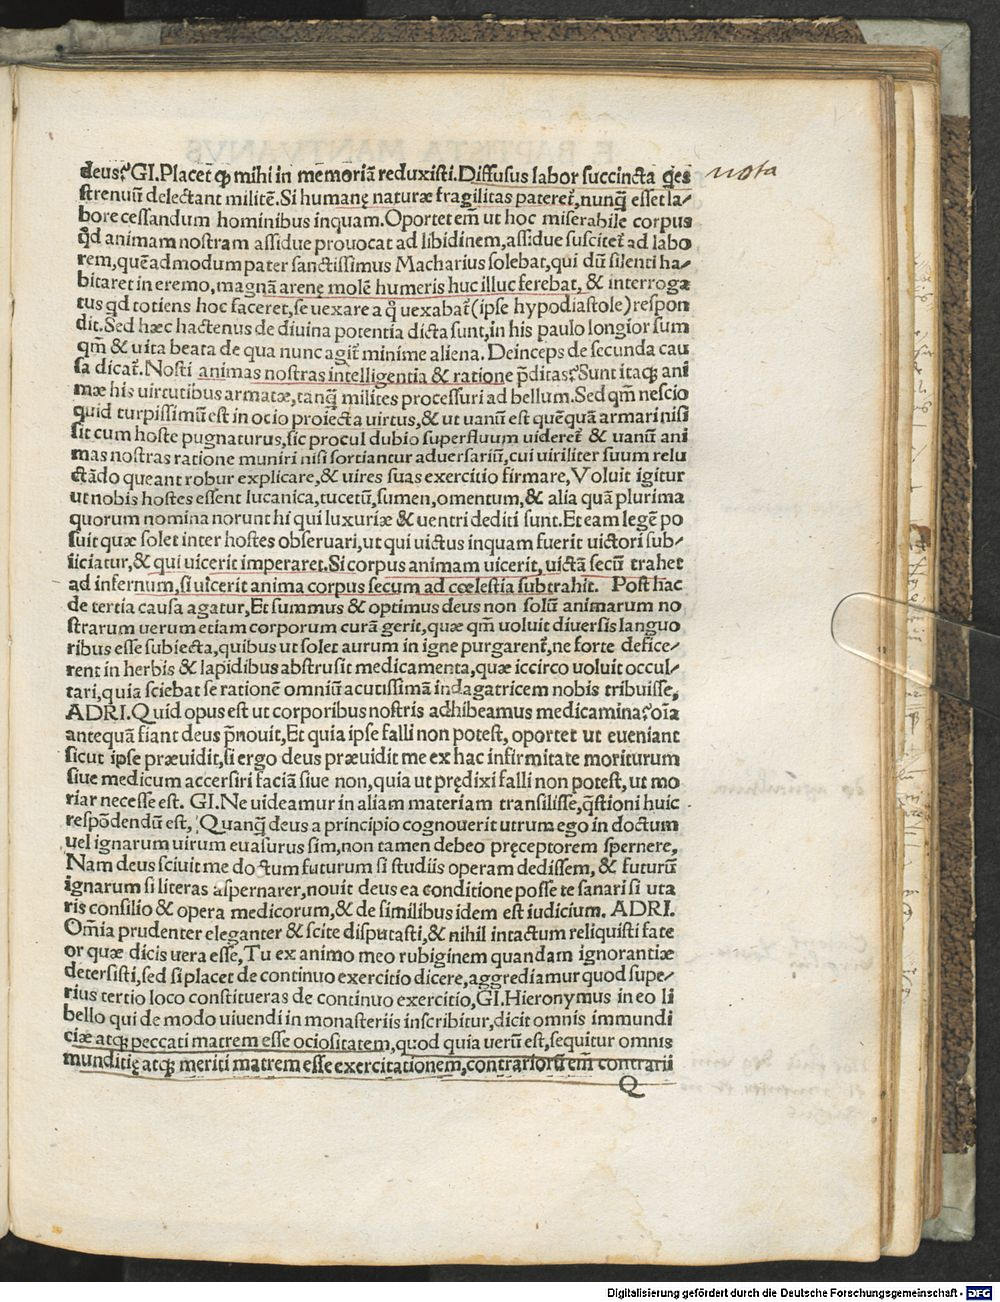 deus? GI. Placet ꝙ mihi in memoriã reduxisti. Diffusus labor succincta q̃es nota
strenuũ delectant militẽ. Si humanę naturæ fragilitas pateret᷑, nunq̃ esset la/
bore cessandum hominibus inquam. Oportet em̃ ut hoc miserabile corpus
qd̃ animam nostram assidue prouocat ad libidinem, assidue suscitet᷑ ad labo
rem, quẽadmodum pater sanctissimus Macharius solebat, qui dũ silenti ha/
bitaret in eremo, magnã arenę molẽ humeris huc illuc ferebat, & interroga
tus qd totiens hoc faceret, se uexare a q̃ uexabat᷑ (ipse hypodiastole) respon
dit. Sed hæc hactenus de diuina potentia dicta sunt, in his paulo longior sum
qm̃ & uita beata de qua nunc agit᷑ minime aliena. Deinceps de secunda cau
sa dicat᷑. Nosti animas nostras intelligentia & ratione p̃ditas? Sunt itaqꝫ ani
mæ his uirtutibus armatæ, tanq̃ milites processuri ad bellum. Sed qm̃ nescio
quid turpissimũ est in ocio proiecta uirtus, & ut uanũ est quẽquã armari nisi
sit cum hoste pugnaturus, sic procul dubio superfluum uideret᷑ & uanũ ani
mas nostras ratione muniri nisi sortiantur aduersariũ, cui uiriliter suum relu
ctãdo queant robur explicare, & uires suas exercitio firmare, Voluit igitur
ut nobis hostes essent lucanica, tucetũ, sumen, omentum, & alia quã plurima
quorum nomina norunt hi qui luxuriæ & uentri dediti sunt. Et eam legẽ po
suit quæ solet inter hostes obseruari, ut qui uictus inquam fuerit uictori sub/
iiciatur, & qui uicerit imperaret. Si corpus animam uicerit, uictã secũ trahet
ad infernum, si uicerit anima corpus secum ad cœlestia subtrahit. Post hac
de tertia causa agatur, Et summus & optimus deus non solũ animarum no
strarum uerum etiam corporum curã gerit, quæ qm̃ uoluit diuersis languo
ribus esse subiecta, quibus ut solet aurum in igne purgarent᷑, ne forte defice/
rent in herbis & lapidibus abstrusit medicamenta, quæ iccirco uoluit occul/
tari, quia sciebat se rationẽ omniũ acutissimã indagatricem nobis tribuisse,
ADRI. Quid opus est ut corporibus nostris adhibeamus medicamina? oĩa
antequã fiant deus p̃nouit, Et quia ipse falli non potest, oportet ut eueniant
sicut ipse præuidit, si ergo deus præuidit me ex hac infirmitate moriturum
siue medicum accersiri faciã siue non, quia ut prędixi falli non potest, ut mo
riar necesse est. GI. Ne uideamur in aliam materiam transilisse, q̃stioni huic
respõdendũ est, Quanq̃ deus a principio cognouerit utrum ego in doctum
uel ignarum uirum euasurus sim, non tamen debeo pręceptorem spernere,
Nam deus sciuit me doctum futurum si studiis operam dedissem, & futurũ
ignarum si literas aspernarer, nouit deus ea conditione posse te sanari si uta
ris consilio & opera medicorum, & de similibus idem est iudicium. ADRI.
Om̃ia prudenter eleganter & scite disputasti, & nihil intactum reliquisti fate
or quæ dicis uera esse, Tu ex animo meo rubiginem quandam ignorantiæ
detersisti, sed si placet de continuo exercitio dicere, aggrediamur quod supe/
rius tertio loco constitueras de continuo exercitio, GI. Hieronymus in eo li
bello qui de modo uiuendi in monasteriis inscribitur, dicit omnis immundi
ciæ atqꝫ peccati matrem esse ociositatem, quod quia uerũ est, sequitur omnis
munditię atqꝫ meriti matrem esse exercitationem, contrariorũ em̃ contrarii
Q
Digitalisierung gefördert durch die Deutsche Forschungsgemeinschaft - DFG